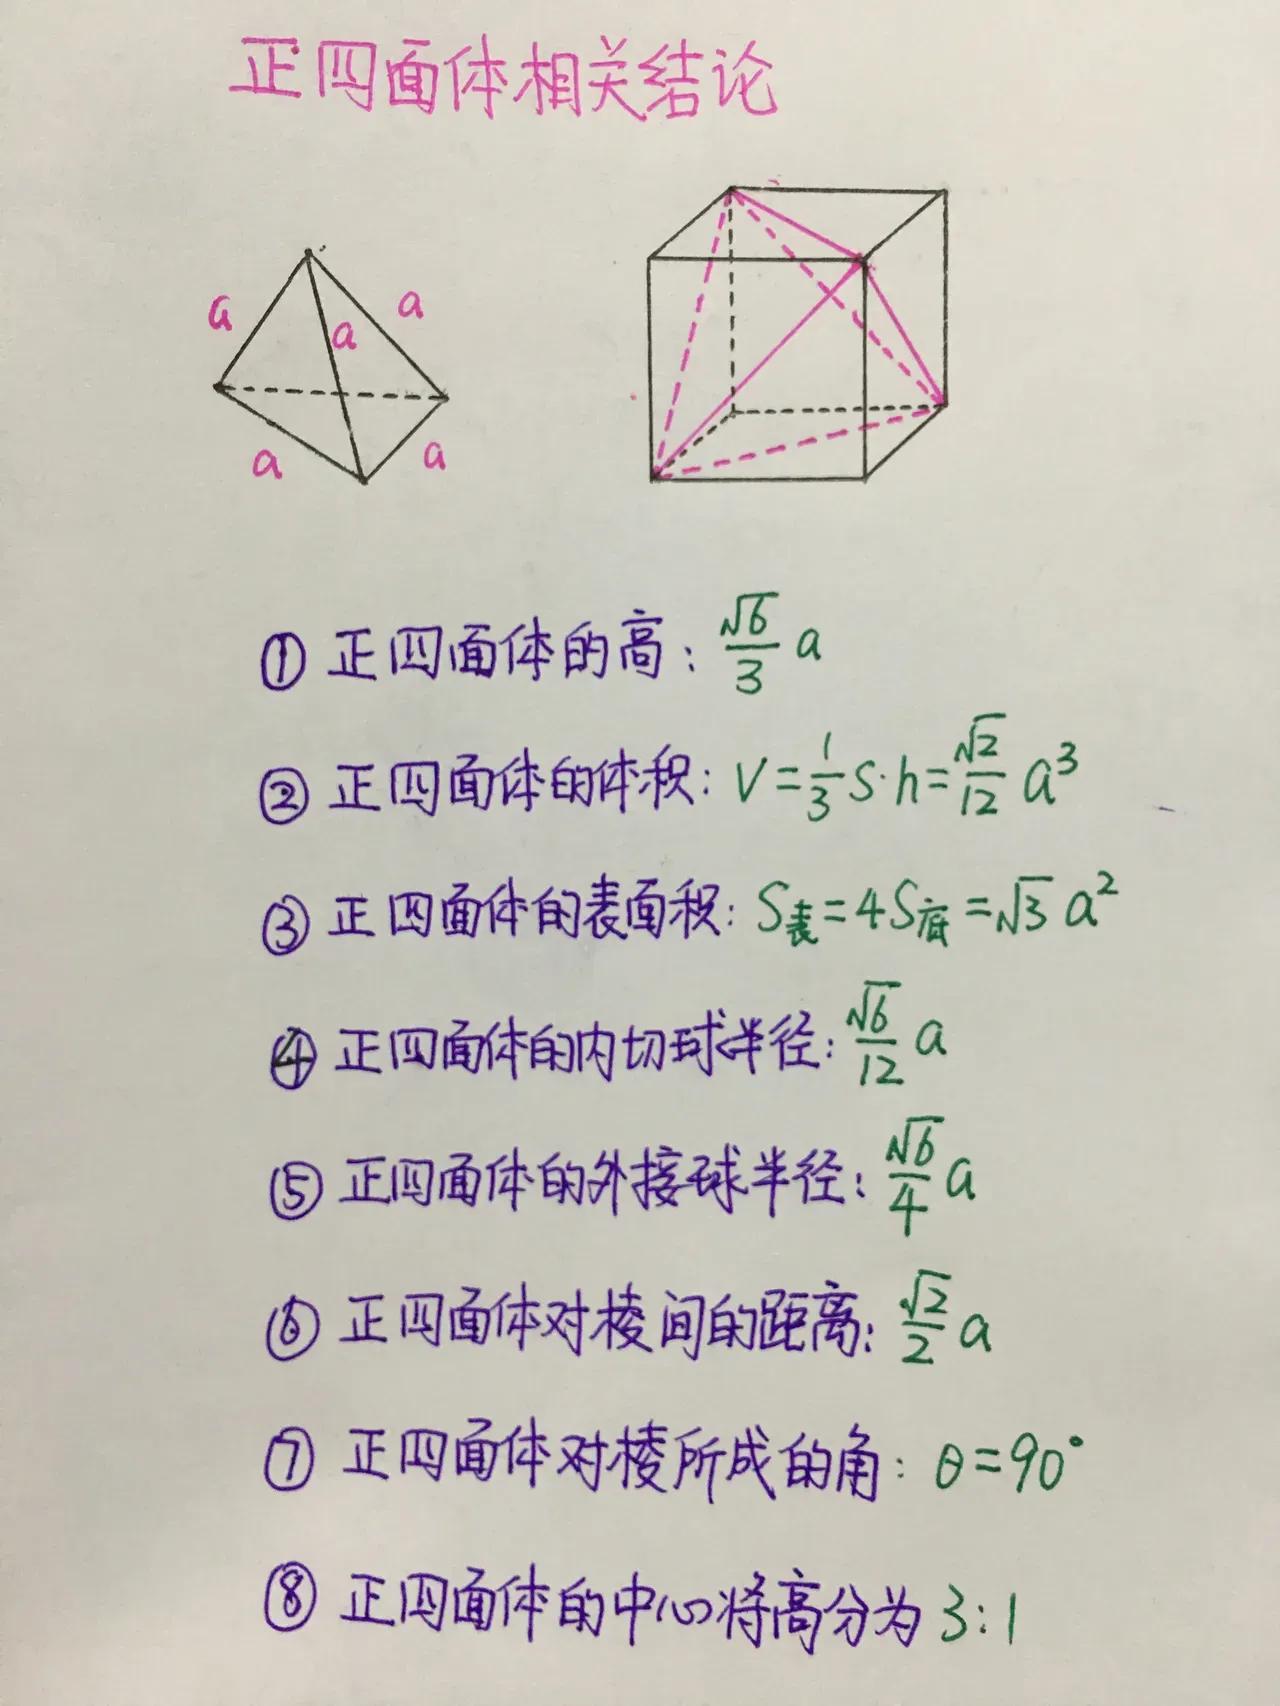 正四面体相关结论
a
a
a
a
a
① 正四面体的高: √6/3 a
② 正四面体的体积: V=1/3 S·h=√2/12 a³
③ 正四面体的表面积: S表=4S底=√3 a²
④ 正四面体的内切球半径: √6/12 a
⑤ 正四面体的外接球半径: √6/4 a
⑥ 正四面体对棱间的距离: √2/2 a
⑦ 正四面体对棱所成的角: θ=90°
⑧ 正四面体的中心将高分为 3:1